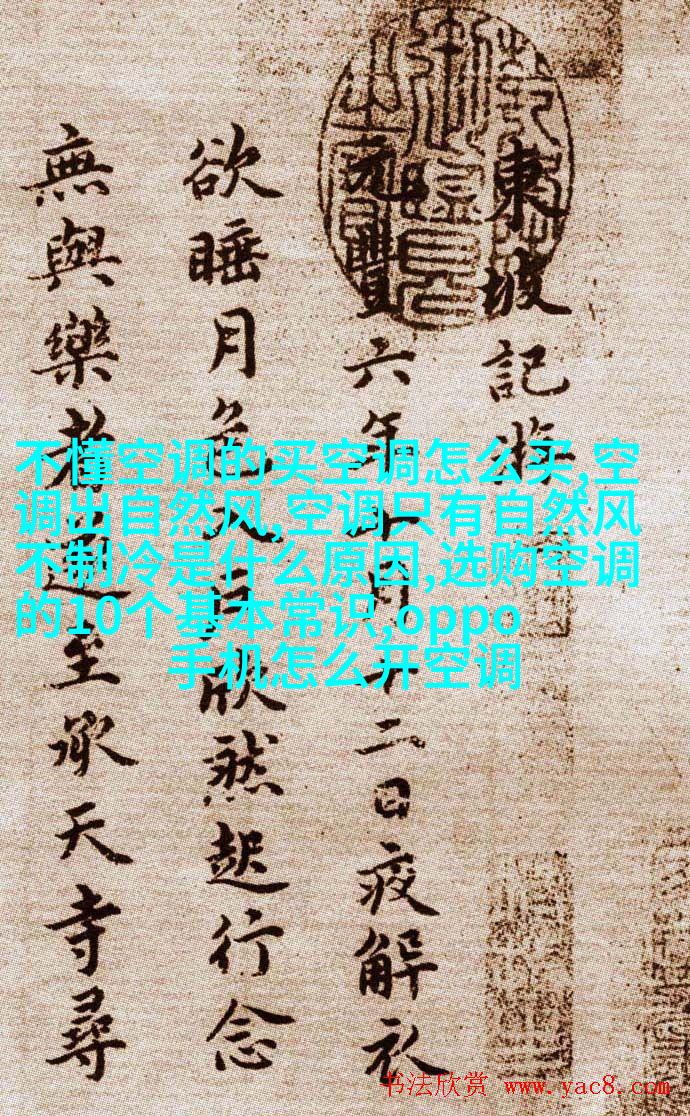 東坡記
元豐六年十月十二日夜解衣
欲睡月色入戶欣然起行念
無與樂者遂至承天寺尋
不懂空调的买空调怎么买,空
调出自然风,空调只有自然风
不制冷是什么原因,选购空调
的10个基本常识,oppo
手机怎么开空调
书法欣赏 www.yac8.com